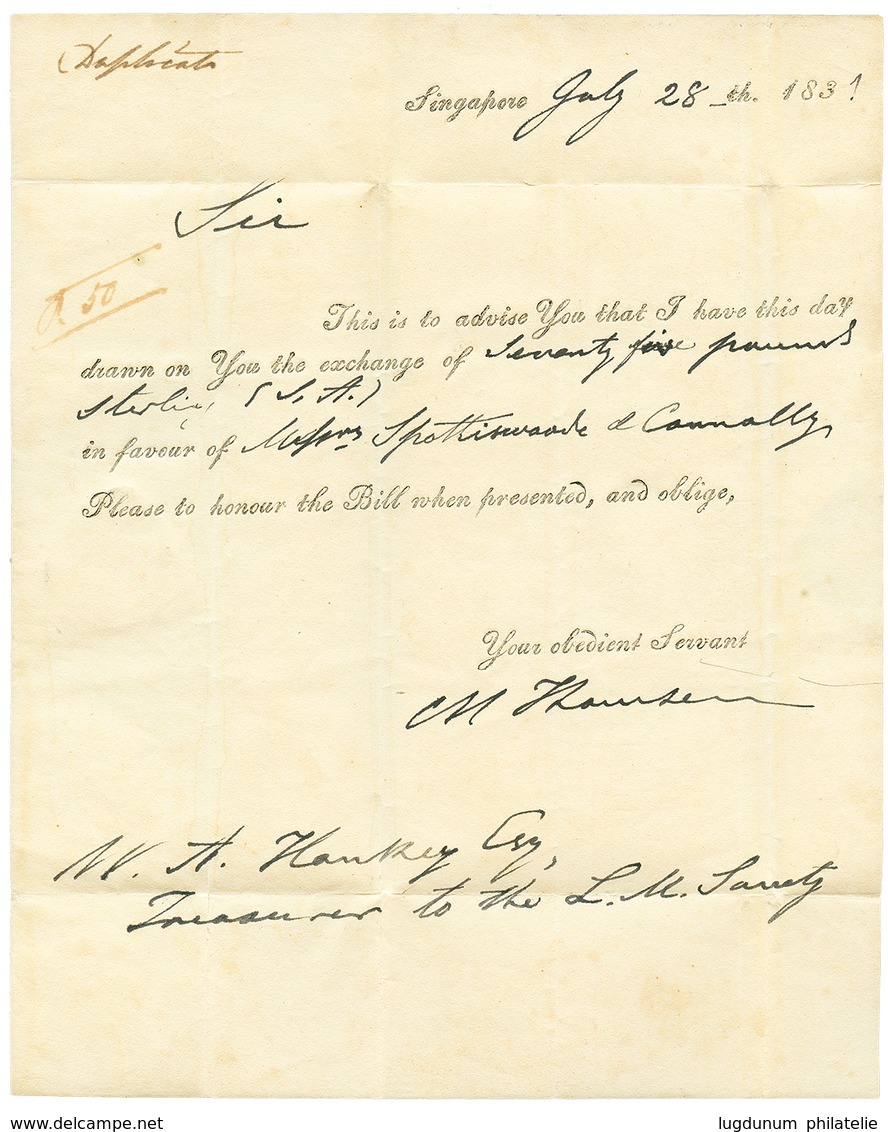 Duplicate
Singapore July 28th. 1831
Sir
50
This is to advise You that I have this day
drawn on You the exchange of Seventy five pounds
Sterling (S.A.)
in favour of Messrs Spottiswoode & Connolly
Please to honour the Bill when presented, and oblige,
Your obedient Servant
W. A. Hankey Esq,
Treasurer to the L. M. Society
www.delcampe.net
lugdunum philatelie